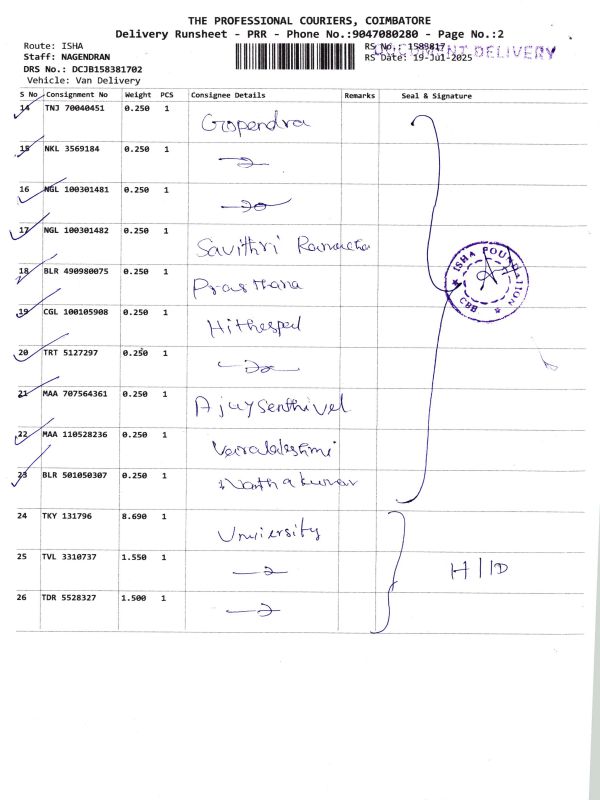 THE PROFESSIONAL COURIERS, COIMBATORE
Delivery Runsheet - PRR - Phone No.:9047080280 - Page No.:2
Route: ISHA
Staff: NAGENDRAN
DRS No.: DCJB158381702
Vehicle: Van Delivery
RS No.: 1583817
DOCUMENT DELIVERY
RS Date: 19-Jul-2025
S No Consignment No Weight PCS Consignee Details Remarks Seal & Signature
14 TNJ 70040451 0.250 1 Gopendra
15 NKL 3569184 0.250 1
16 NGL 100301481 0.250 1
17 NGL 100301482 0.250 1 Savithri
18 BLR 490980075 0.250 1 Prasthana
19 CGL 100105908 0.250 1
20 TRT 5127297 0.250 1
21 MAA 707564361 0.250 1 Ajuysenthivel
22 MAA 110528236 0.250 1 Varalakshmi
23 BLR 501050307 0.250 1
ISHA FOUNDATION
CBB
24 TKY 131796 8.690 1 University
25 TVL 3310737 1.550 1
26 TDR 5528327 1.500 1
H/ID